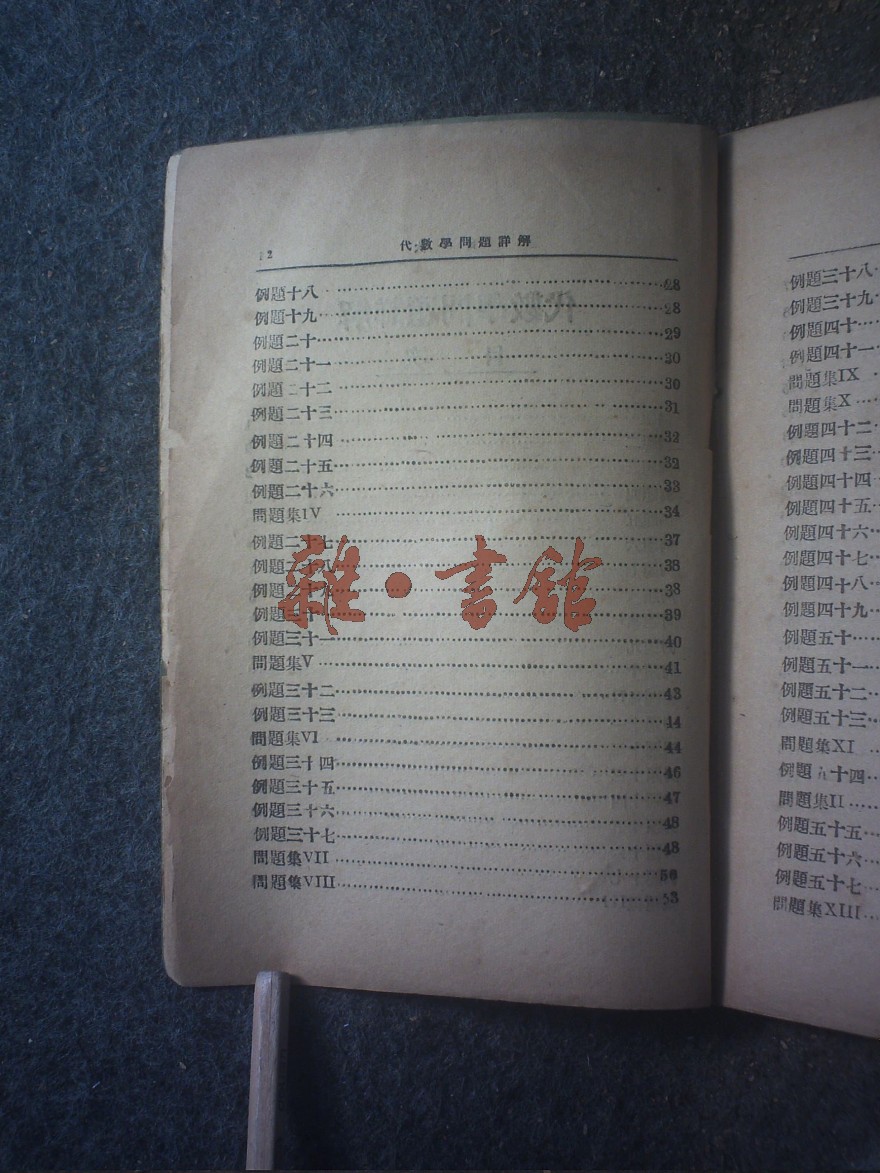 2
代數學問題詳解
例題十八 ……28
例題十九 ……28
例題二十 ……29
例題二十一 ……30
例題二十二 ……30
例題二十三 ……31
例題二十四 ……32
例題二十五 ……32
例題二十六 ……33
問題集IV ……34
例題二十七 ……37
例題二十八 ……38
例題二十九 ……38
例題三十 ……39
例題三十一 ……40
問題集V ……41
例題三十二 ……43
例題三十三 ……44
問題集VI ……44
例題三十四 ……46
例題三十五 ……47
例題三十六 ……48
例題三十七 ……48
問題集VII ……50
問題集VIII ……53
雜•書館
例題三十八
例題三十九
例題四十
例題四十一
問題集IX
問題集X
例題四十二
例題四十三
例題四十四
例題四十五
例題四十六
例題四十七
例題四十八
例題四十九
例題五十
例題五十一
例題五十二
例題五十三
問題集XI
例題五十四
問題集II
例題五十五
例題五十六
例題五十七
問題集XIII